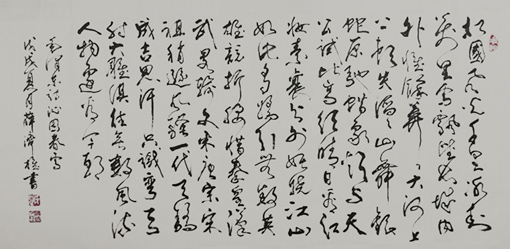 北國風光千里冰封
萬里雪飄望長城內
外惟餘莽莽大河上
下頓失滔滔山舞銀
蛇原馳蠟象欲與天
公試比高須晴日看紅
妝素裹分外妖嬈江山
如此多嬌引無數英
雄競折腰惜秦皇漢
武略輸文采唐宗宋
祖稍遜風騷一代天驕
成吉思汗只識彎弓
射大雕俱往矣數風流
人物還看今朝
毛澤東詞沁園春雪
戊戌夏月薛書